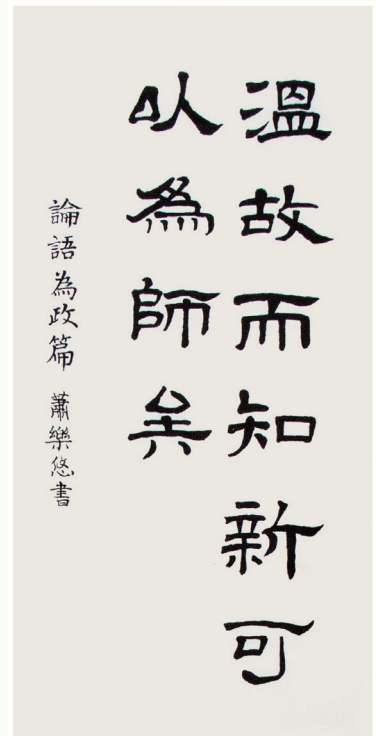 溫故而知新可
以為師矣
論語為政篇 蕭樂悠書